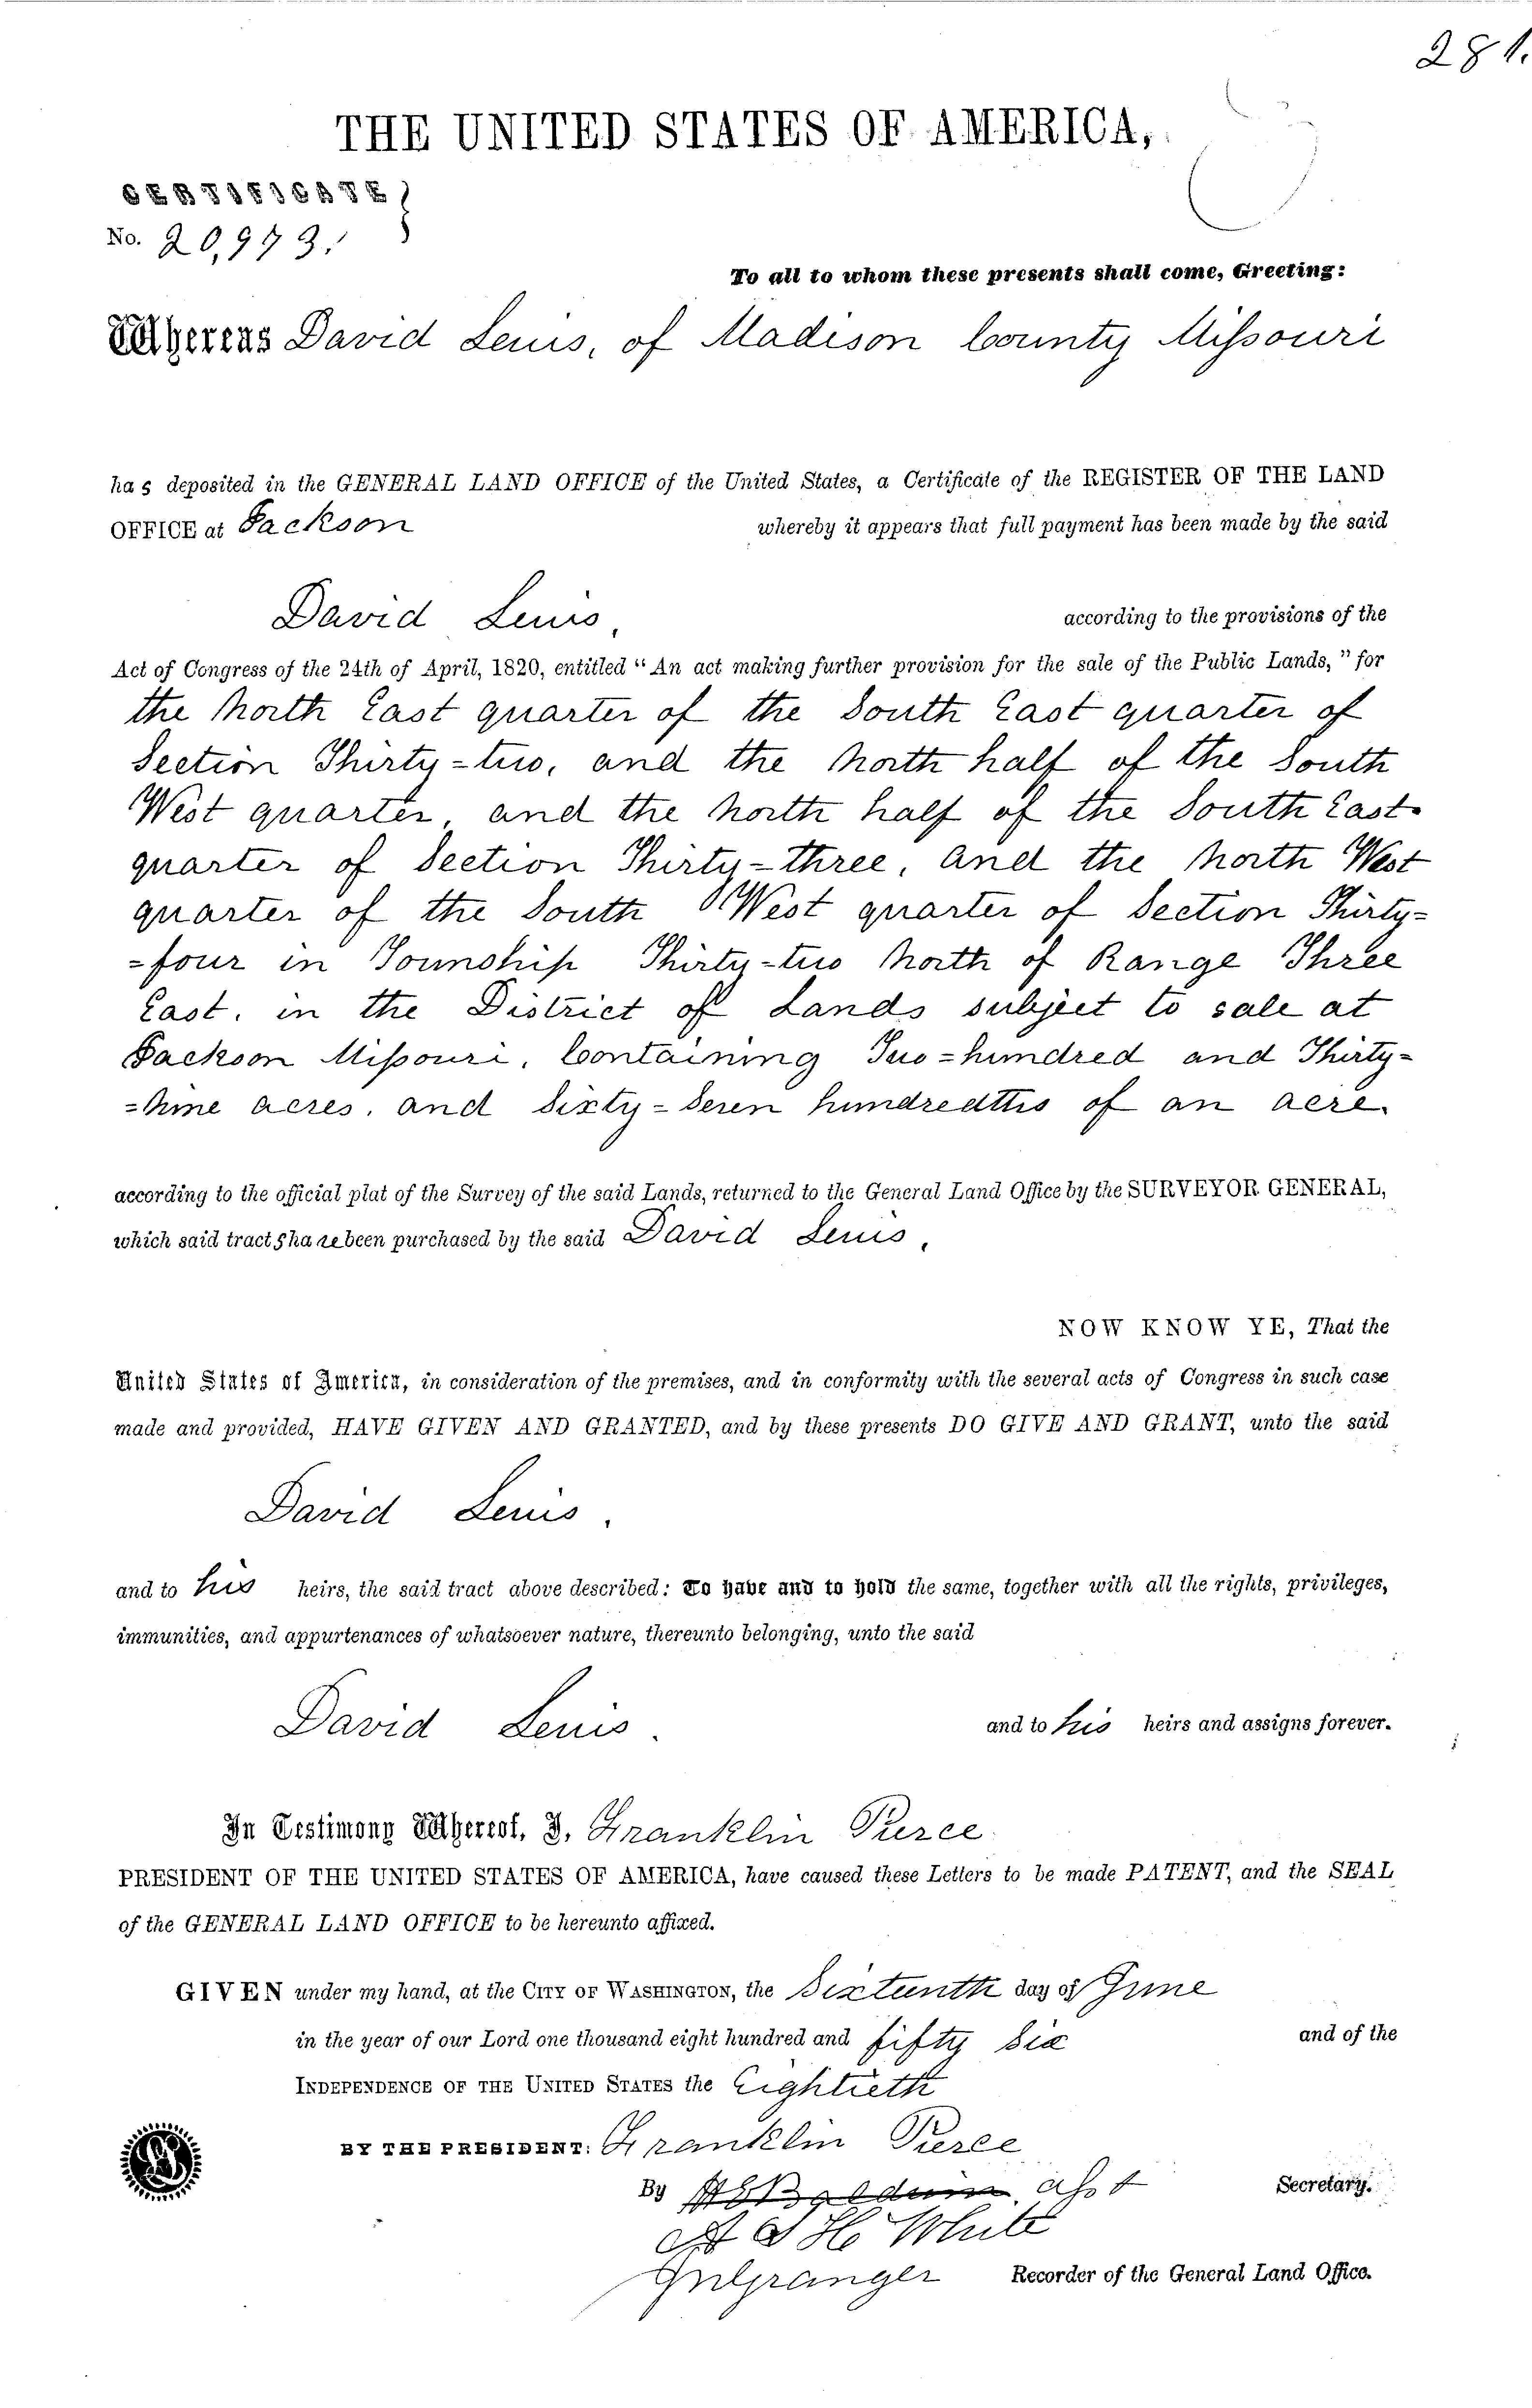 281.
THE UNITED STATES OF AMERICA,
CERTIFICATE
No. 20,973.
To all to whom these presents shall come, Greeting:
Whereas David Lewis, of Madison County Missouri
has deposited in the GENERAL LAND OFFICE of the United States, a Certificate of the REGISTER OF THE LAND
OFFICE at Jackson whereby it appears that full payment has been made by the said
David Lewis, according to the provisions of the
Act of Congress of the 24th of April, 1820, entitled "An act making further provision for the sale of the Public Lands," for
the North East quarter of the South East quarter of
Section Thirty-two, and the North half of the South
West quarter, and the North half of the South East
quarter of Section Thirty-three, and the North West
quarter of the South West quarter of Section Thirty-
=four in Township Thirty-two North of Range Three
East, in the District of Lands subject to sale at
Jackson Missouri, Containing Two=hundred and Thirty=
=Nine acres, and Sixty=Seven hundredths of an acre.
according to the official plat of the Survey of the said Lands, returned to the General Land Office by the SURVEYOR GENERAL,
which said tracts have been purchased by the said David Lewis,
NOW KNOW YE, That the
United States of America, in consideration of the premises, and in conformity with the several acts of Congress in such case
made and provided, HAVE GIVEN AND GRANTED, and by these presents DO GIVE AND GRANT, unto the said
David Lewis,
and to his heirs, the said tract above described: To have and to hold the same, together with all the rights, privileges,
immunities, and appurtenances of whatsoever nature, thereunto belonging, unto the said
David Lewis. and to his heirs and assigns forever.
In Testimony Whereof, I, Franklin Pierce
PRESIDENT OF THE UNITED STATES OF AMERICA, have caused these Letters to be made PATENT, and the SEAL
of the GENERAL LAND OFFICE to be hereunto affixed.
GIVEN under my hand, at the CITY OF WASHINGTON, the Sixteenth day of June
in the year of our Lord one thousand eight hundred and fifty six and of the
INDEPENDENCE OF THE UNITED STATES the Eightieth
BY THE PRESIDENT: Franklin Pierce
By Baldwin Asst Secretary.
White
Granger Recorder of the General Land Office.